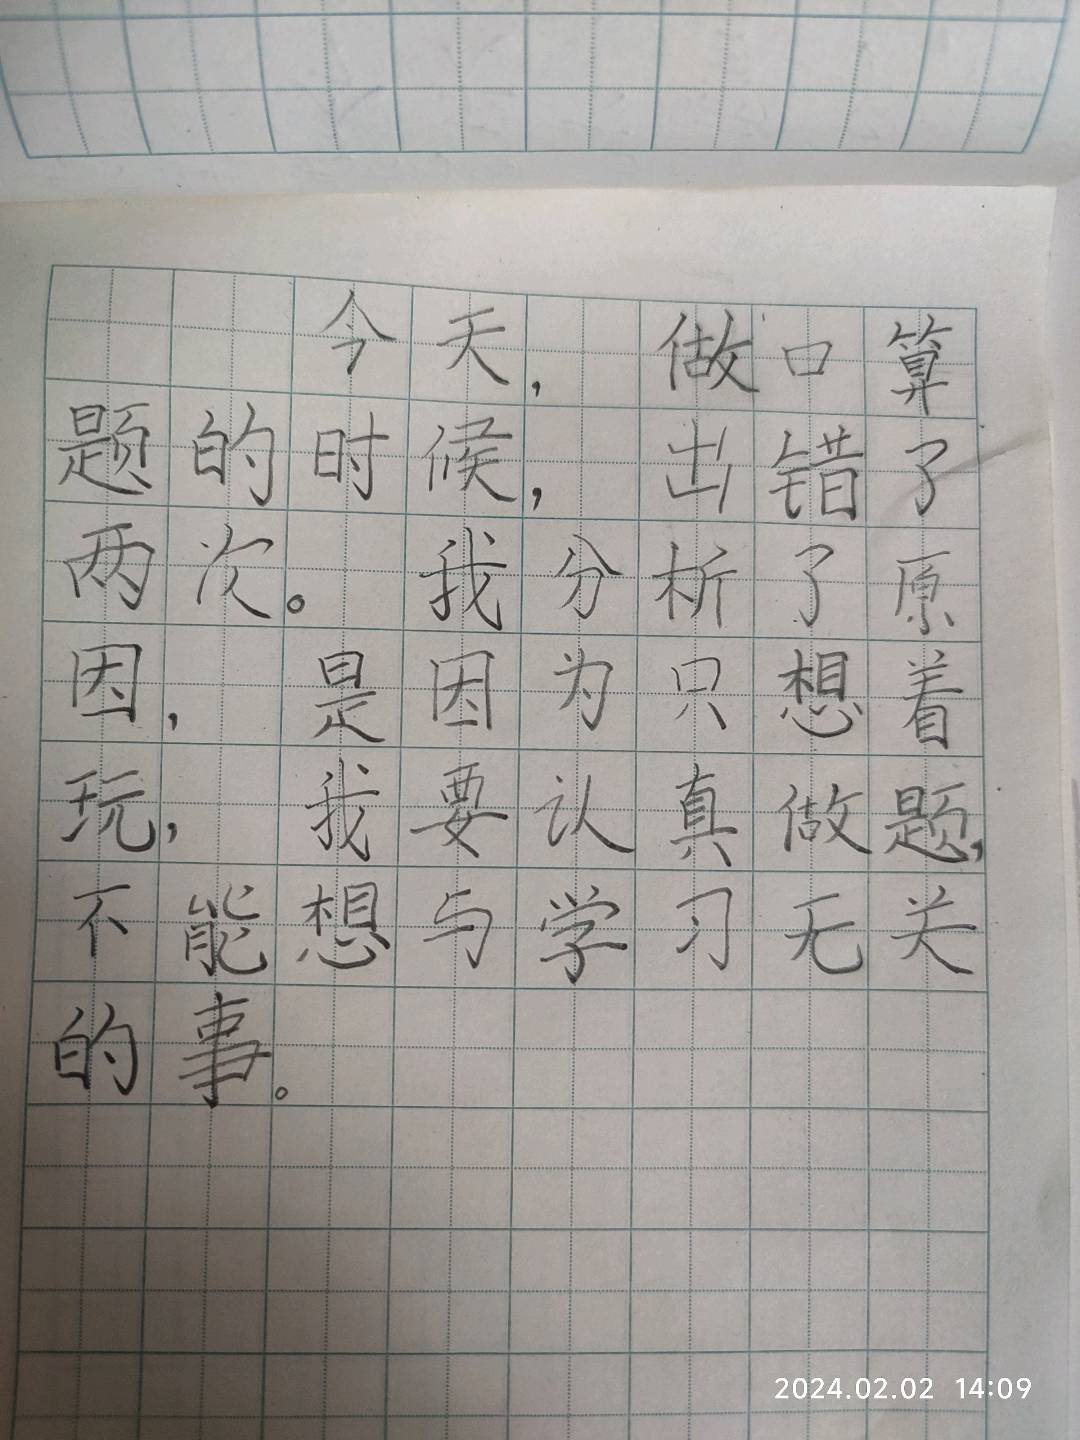 今天，做口算
题的时候，出错了
两次。我分析了原
因，是因为只想着
玩，我要认真做题，
不能想与学习无关
的事。
2024.02.02 14:09